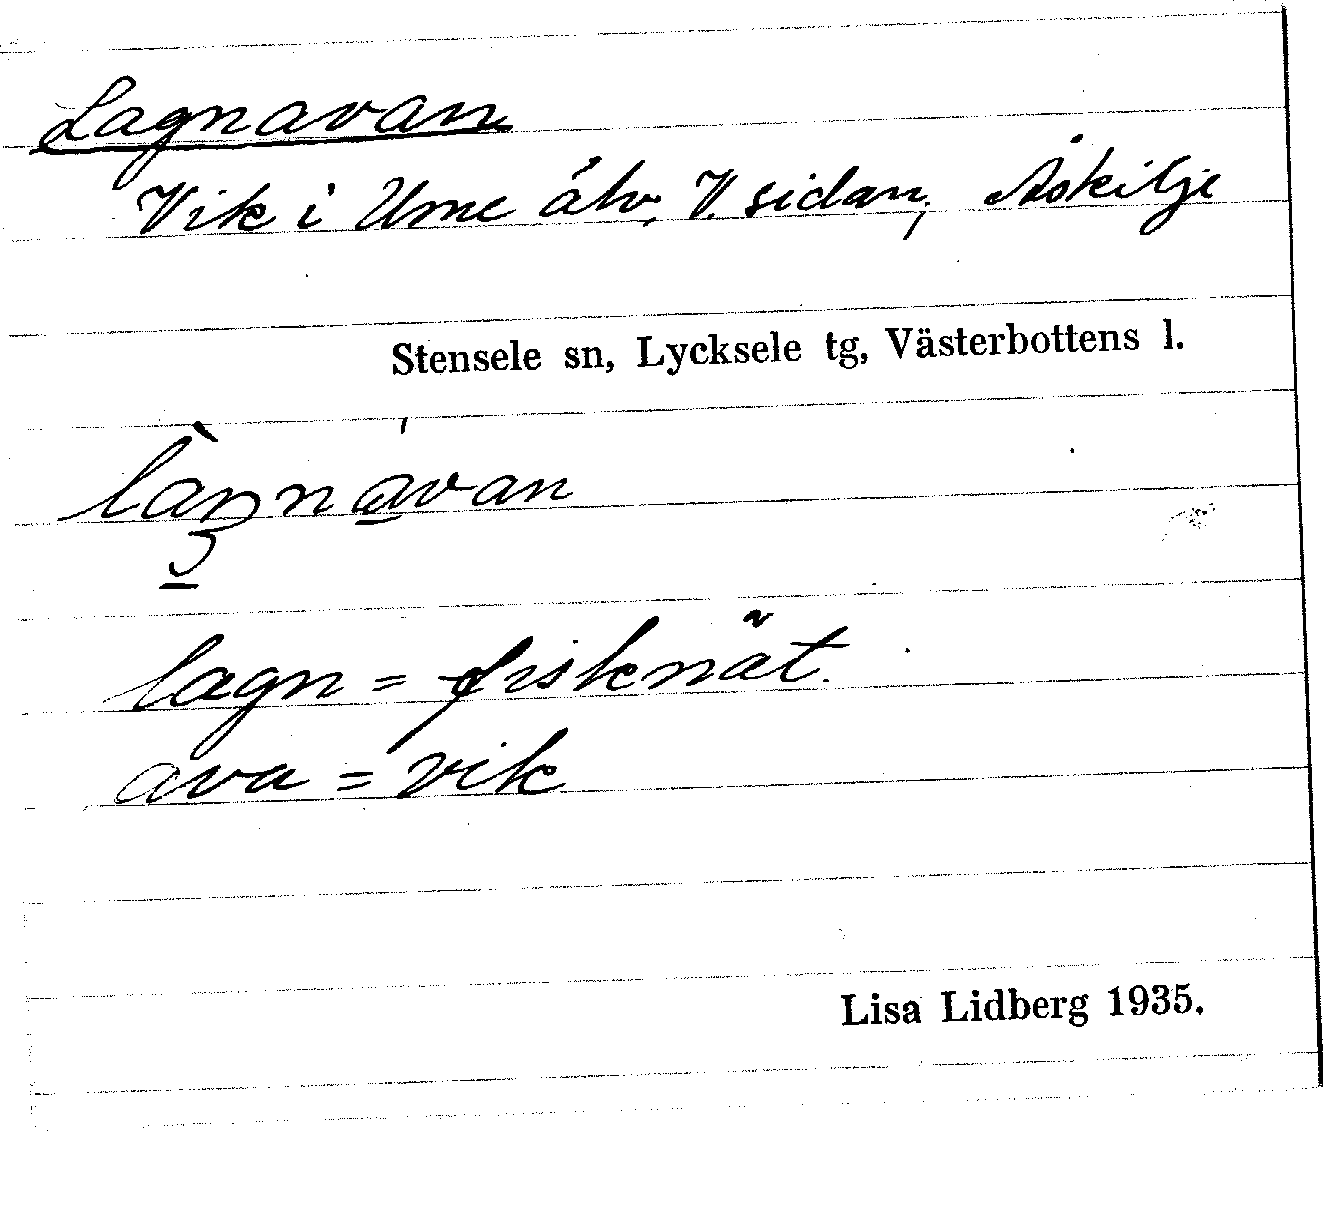 Lagnavan
Vik i Ume älv, V. sidan, Åskilje
Stensele sn, Lycksele tg, Västerbottens l.
lagn = fisknät.
ava = vik
Lisa Lidberg 1935.